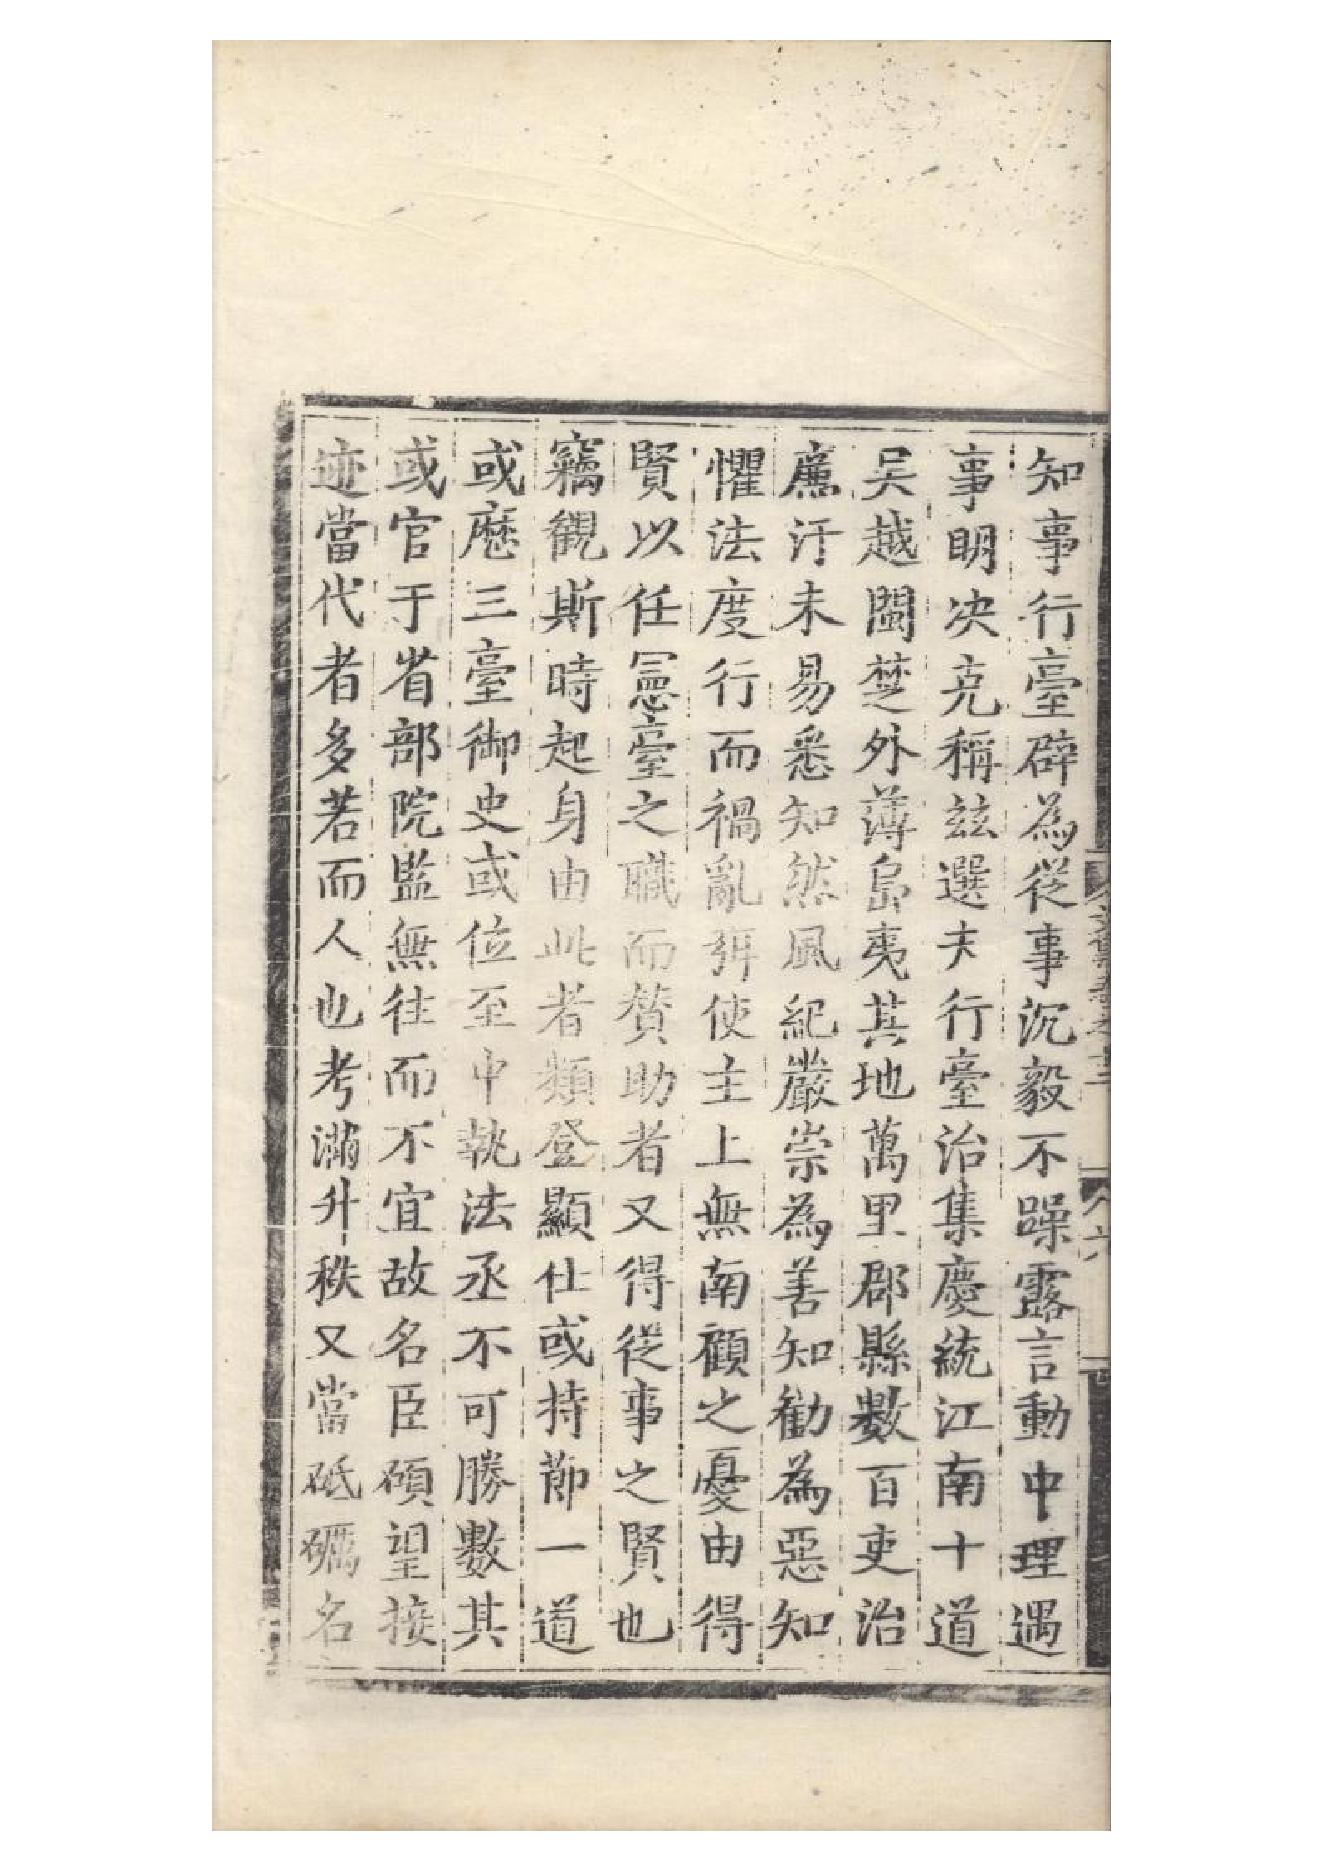 知事行臺辟為從事沉毅不躁露言動中理遇
事明决克稱兹選夫行臺治集慶統江南十道
吴越閩楚外薄島夷其地萬里郡縣數百吏治
廉汙未易悉知然風紀嚴崇為善知勸為惡知
懼法度行而禍亂弭使主上無南顧之憂由得
賢以任憲臺之職而賛助者又得從事之賢也
竊觀斯時起身由此者類登顯仕或持節一道
或歷三臺御史或位至中執法丞不可勝數其
或官于省部院監無往而不宜故名臣碩望接
迹當代者多若而人也考滿升秩又當砥礪名
六